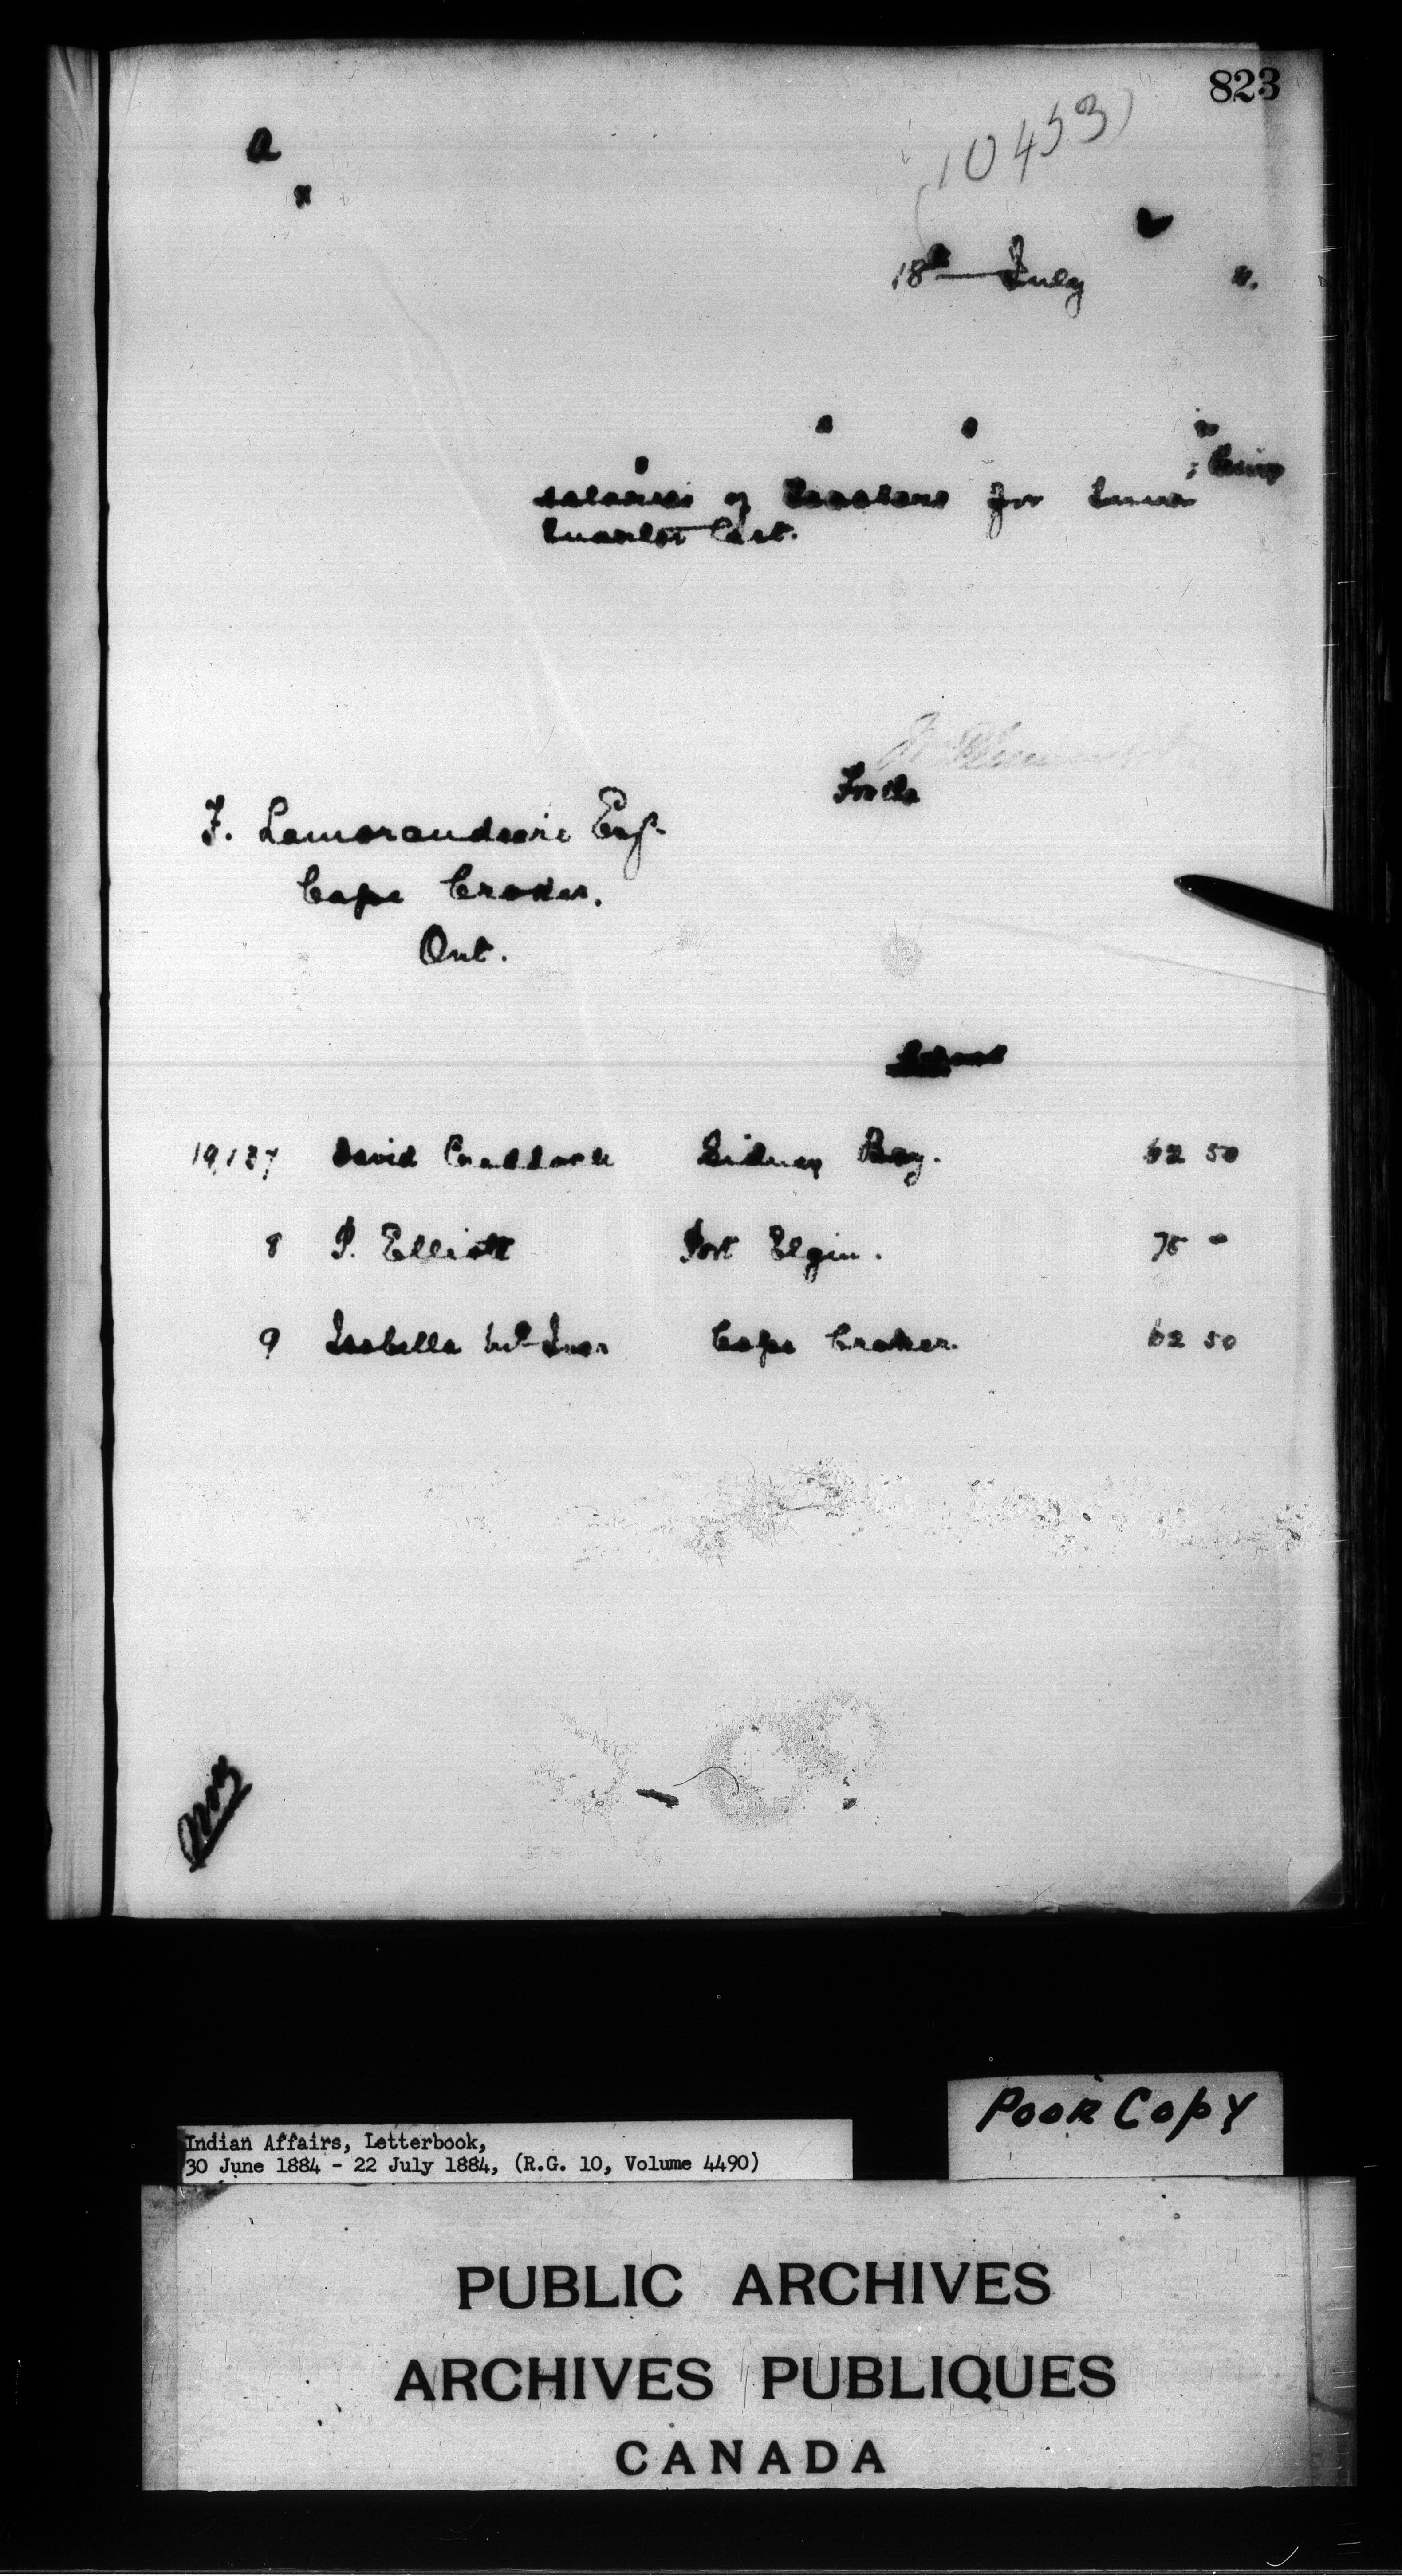 823
10453
a
18th July 4.
; being
salaries of Teachers for June
Quarter last.
For the
F. Lamorandiere Esq.
Cape Croker.
Ont.
School
19,137 David Craddock Sidney Bay. 62 50
8 P. Elliott Port Elgin. 75 -
9 Isabella McIver Cape Croker. 62 50
Poor Copy
Indian Affairs, Letterbook,
30 June 1884 - 22 July 1884, (R.G. 10, Volume 4490)
PUBLIC ARCHIVES
ARCHIVES PUBLIQUES
CANADA